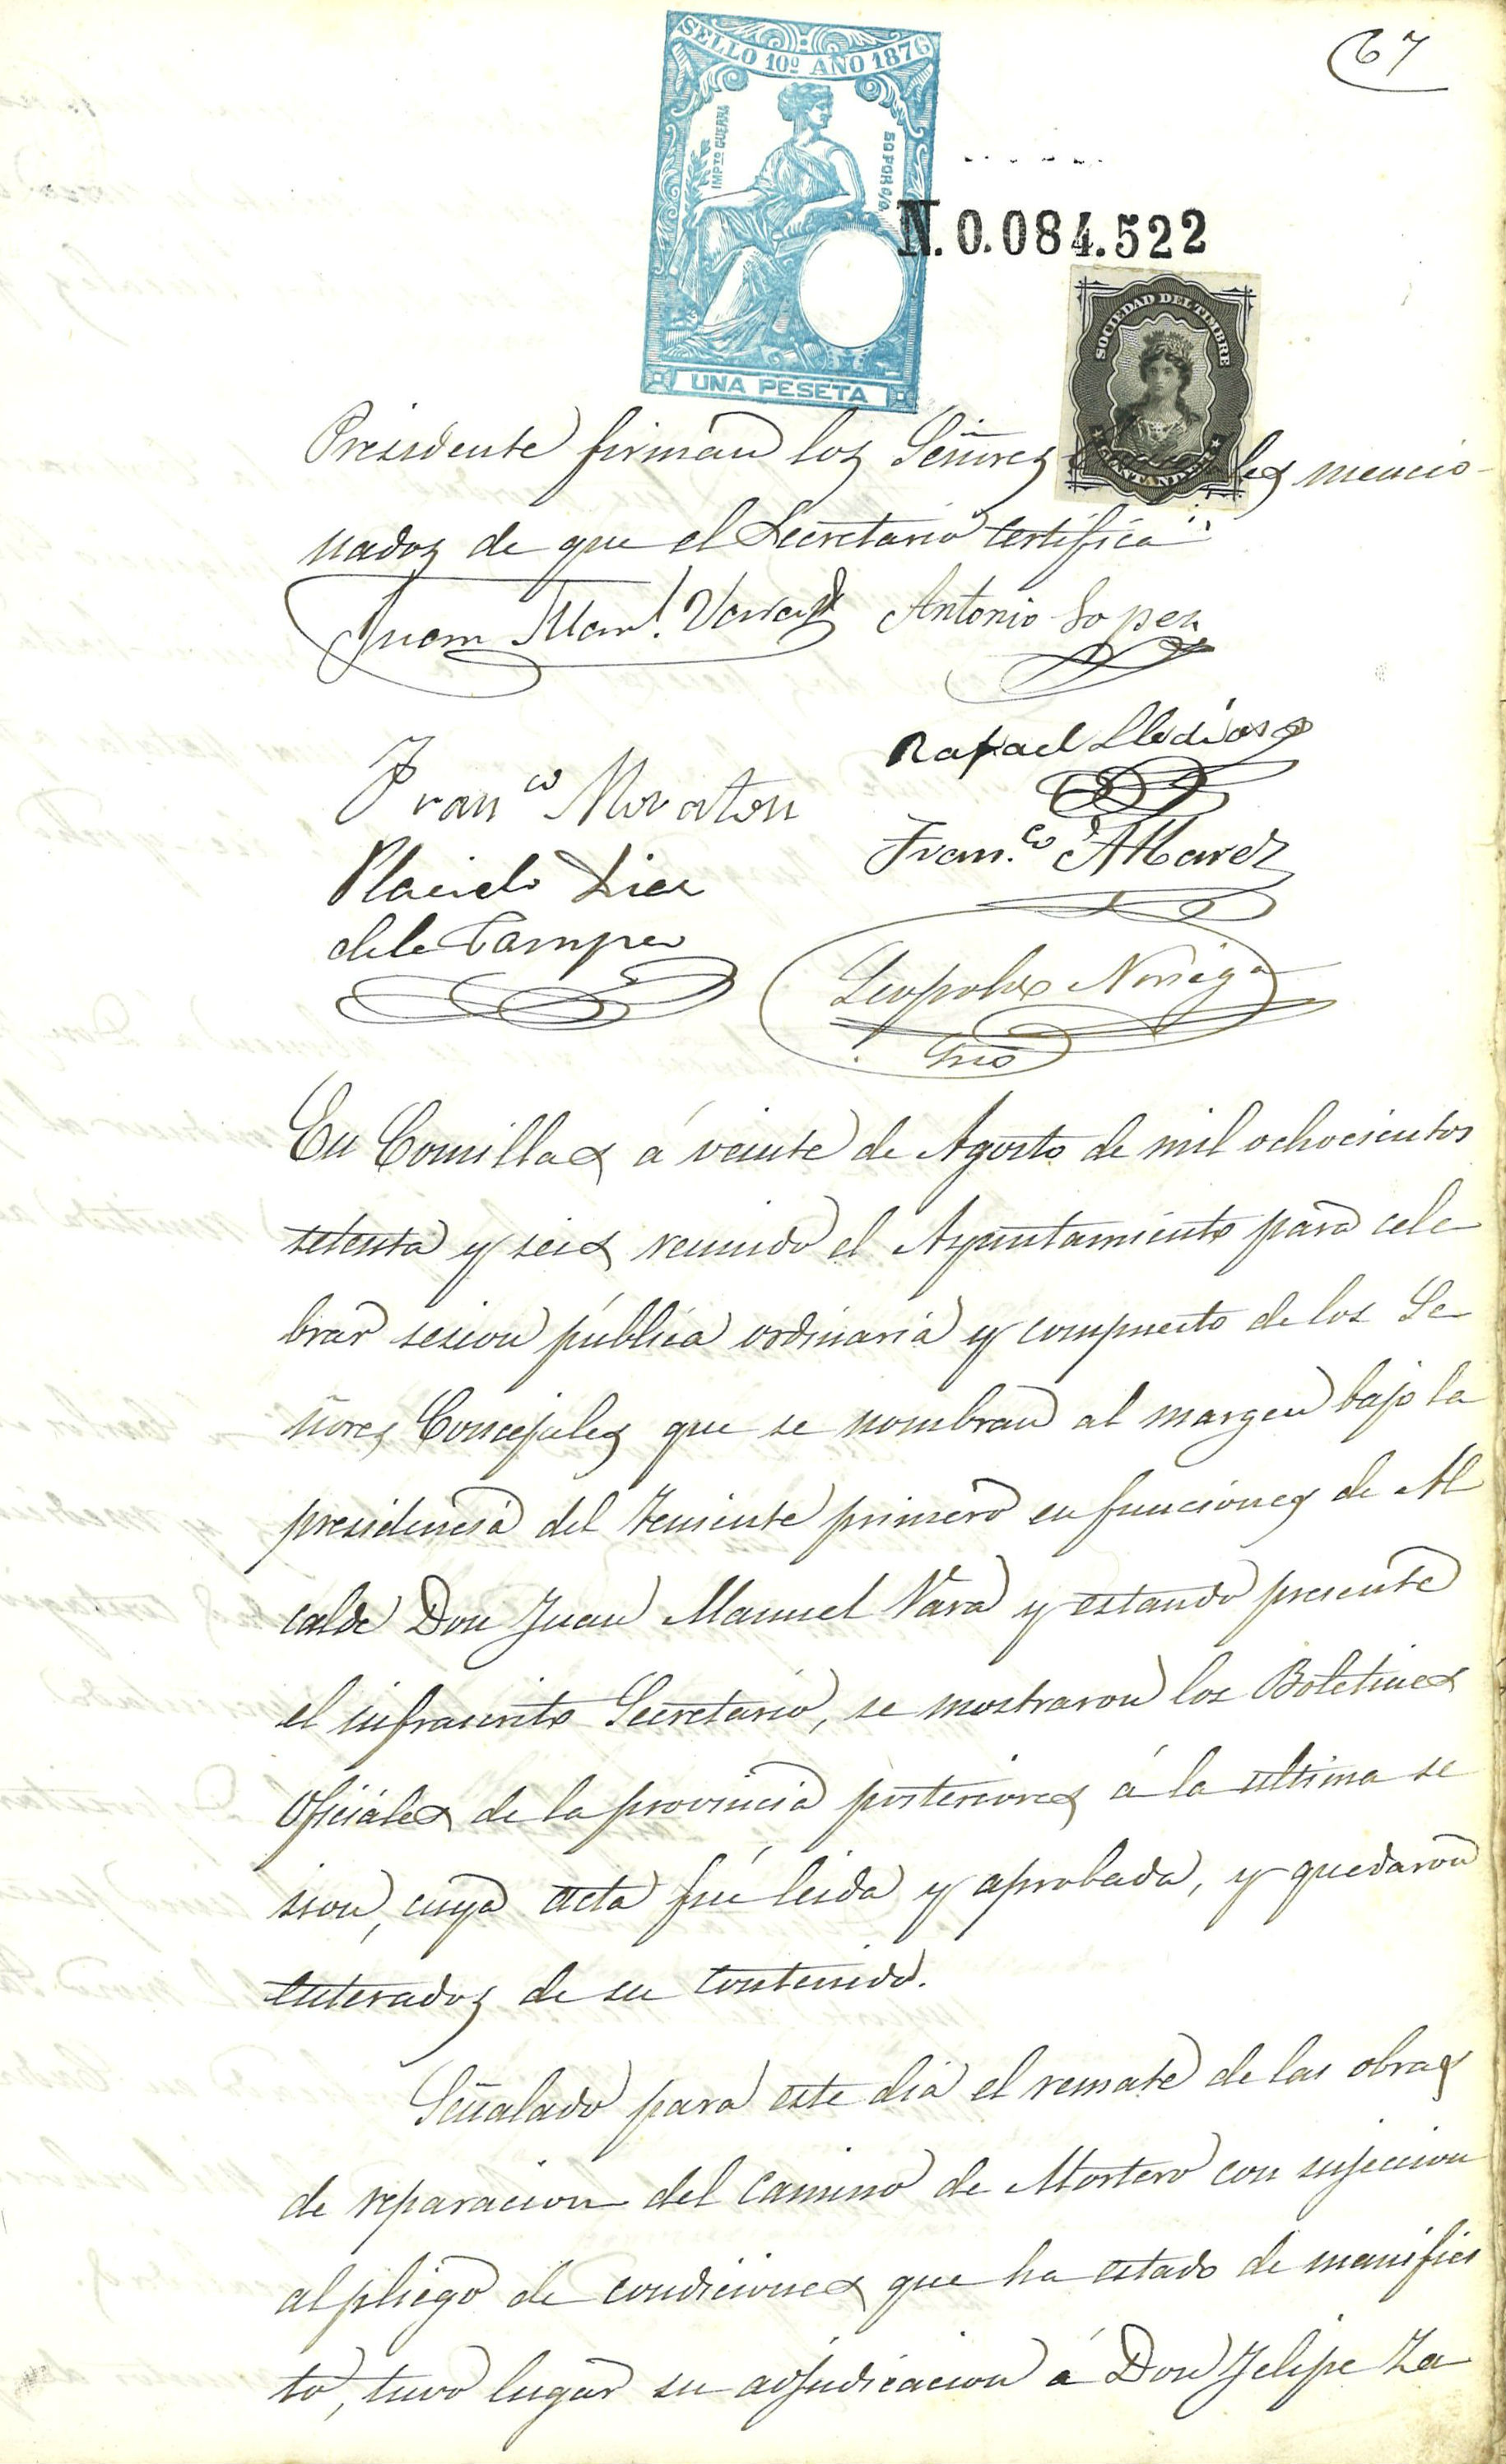 67
SELLO 10º AÑO 1876
IMPTO GUERRA
50 POR C/O.
N. 0.084.522
UNA PESETA
SOCIEDAD DEL TIMBRE
Presidente firman los Señores les mencio-
nados de que el Secretario certifica
Juan Man.l Vara Antonio Lopez
Rafael Lledias
Fran.co Moraton
Fran.co Alvarez
Placido Diaz
de la Campa
Leopoldo Noriega
Srio
En Comillas á veinte de Agosto de mil ochocientos
setenta y seis reunido el Ayuntamiento para cele
brar sesion pública ordinaria y compuesto de los Se
ñores Concejales que se nombran al margen bajo la
presidencia del teniente primero en funciones de Al
calde Don Juan Manuel Vara y estando presente
el infrascrito Secretario, se mostraron los Boletines
Oficiales de la provincia posteriores á la ultima se
sion, cuya acta fué leida y aprobada, y quedaron
enterados de su contenido.
Señalado para este dia el remate de las obras
de reparacion del camino de Mortero con sujeccion
al pliego de condiciones que ha estado de manifies
to, tuvo lugar su adjudicacion á Don Felipe Za